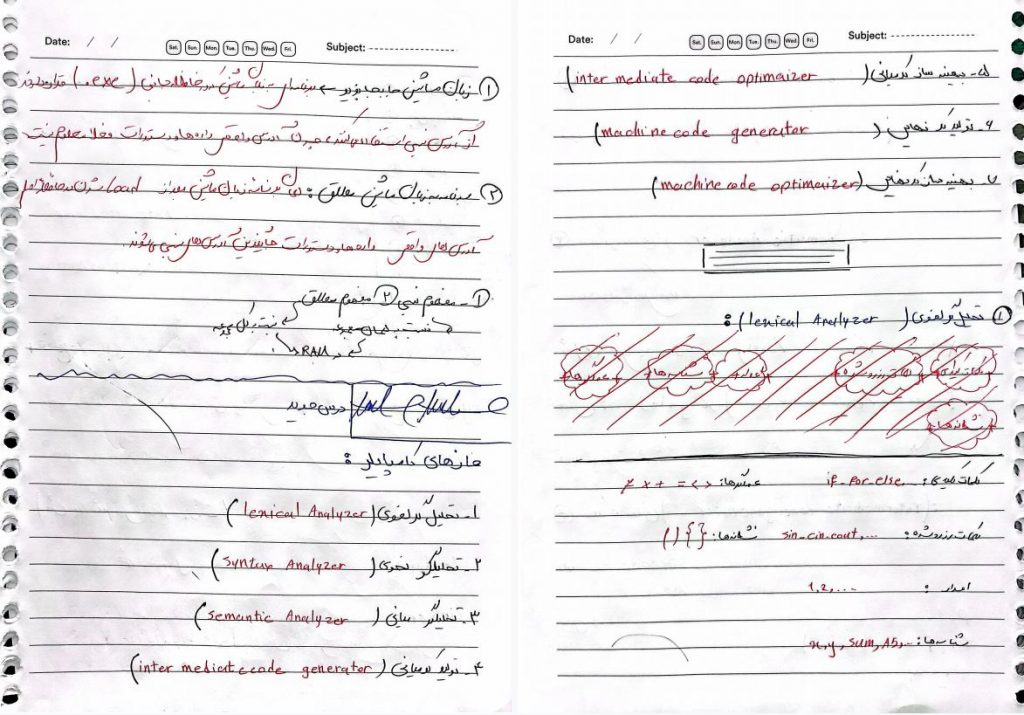 Date: / /
Sat. Sun. Mon. Tue. Thu. Wed. Fri.
Subject:
① زبان ماشین جابجاپذیر ← برنامه‌ای به زبان ماشین که در حافظه جانبی (.exe) قرار دارد و
از آدرس نسبی استفاده می‌کند، چون آدرس واقعی داده‌ها و دستورات فعلا معلوم نیست
② برنامه به زبان ماشین مطلق: همان برنامه زبان ماشین بعد از load شدن در حافظه RAM
آدرس‌های واقعی داده‌ها و دستورات جایگزین آدرس‌های نسبی می‌شوند.
① مفهوم نسبی ② مفهوم مطلق
نسبت به همان نسبت به کل
RAM
درس جدید
فازهای کامپایلر:
۱- تحلیلگر لغوی (lexical Analyzer)
۲- تحلیلگر نحوی (Syntax Analyzer)
۳- تحلیلگر معنایی (Semantic Analyzer)
۴- تولید کد میانی (inter mediate code generator)
Date: / /
Sat. Sun. Mon. Tue. Thu. Wed. Fri.
Subject:
۵- بهینه ساز کد میانی (inter mediate code optimaizer)
۶- تولید کد نهایی (machine code generator)
۷- بهینه ساز کد نهایی (machine code optimaizer)
① تحلیلگر لغوی (lexical Analyzer):
کلمات کلیدی کلمات رزرو شده اعداد شناسه‌ها عملگرها
نشانه‌ها
کلمات کلیدی: if_for_else عملگرها: < > = + × ≠
کلمات رزرو شده: sin_cin_cout,... نشانه‌ها: { } ( )
اعداد: 1,2,...
شناسه‌ها: x,y,sum,A5,...